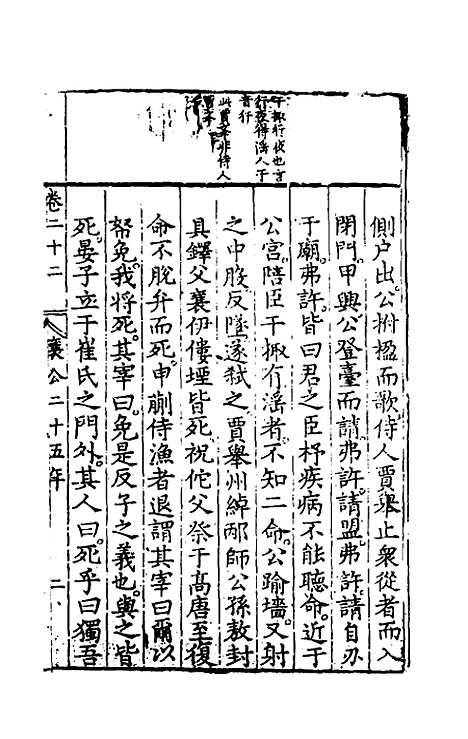 干掫行夜也言
行夜得淫人于
音行
此賈舉非侍人
賈舉
側户出公拊楹而歌侍人賈舉止衆從者而入
閉門甲興公登臺而請弗許請盟弗許請自刃
于廟弗許皆曰君之臣杼疾病不能聽命近于
公宮陪臣干掫有淫者不知二命公踰墻又射
之中股反墜遂弑之賈舉州綽邴師公孫敖封
具鐸父襄伊僂堙皆死祝佗父祭于高唐至復
命不脫弁而死申蒯侍漁者退謂其宰曰爾以
帑免我將死其宰曰免是反子之義也與之皆
死晏子立于崔氏之門外其人曰死乎曰獨吾
卷二十二
襄公二十五年
二